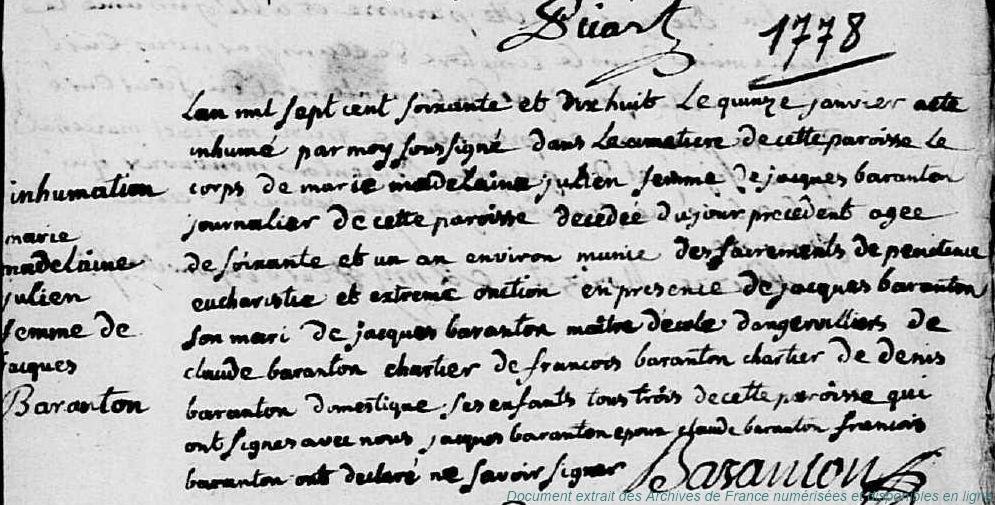 Piart
1778
Lan mil sept cent soixante et dix huit Le quinze janvier aeté
inhumé par moy soussigné dans Le cimetiere de cette paroisse Le
corps de marie madelaine julien femme de jacques baranton
journalier de cette paroisse decedeé du jour precedent agee
de soixante et un an environ munie des sacrements de penitence
eucharistie et extreme onction en presence de jacques baranton
son mari de jacques baranton maître décole dangervilliers de
claude baranton chartier de francois baranton chartier de denis
baranton domestique ses enfants tous trois de cette paroisse qui
ont signes avec nous jacques baranton epoux claude baranton francois
baranton ont declaré ne savoir signer Baranton
inhumation
marie
madelaine
julien
femme de
jacques
Baranton
Document extrait des Archives de France numérisées et disponibles en ligne